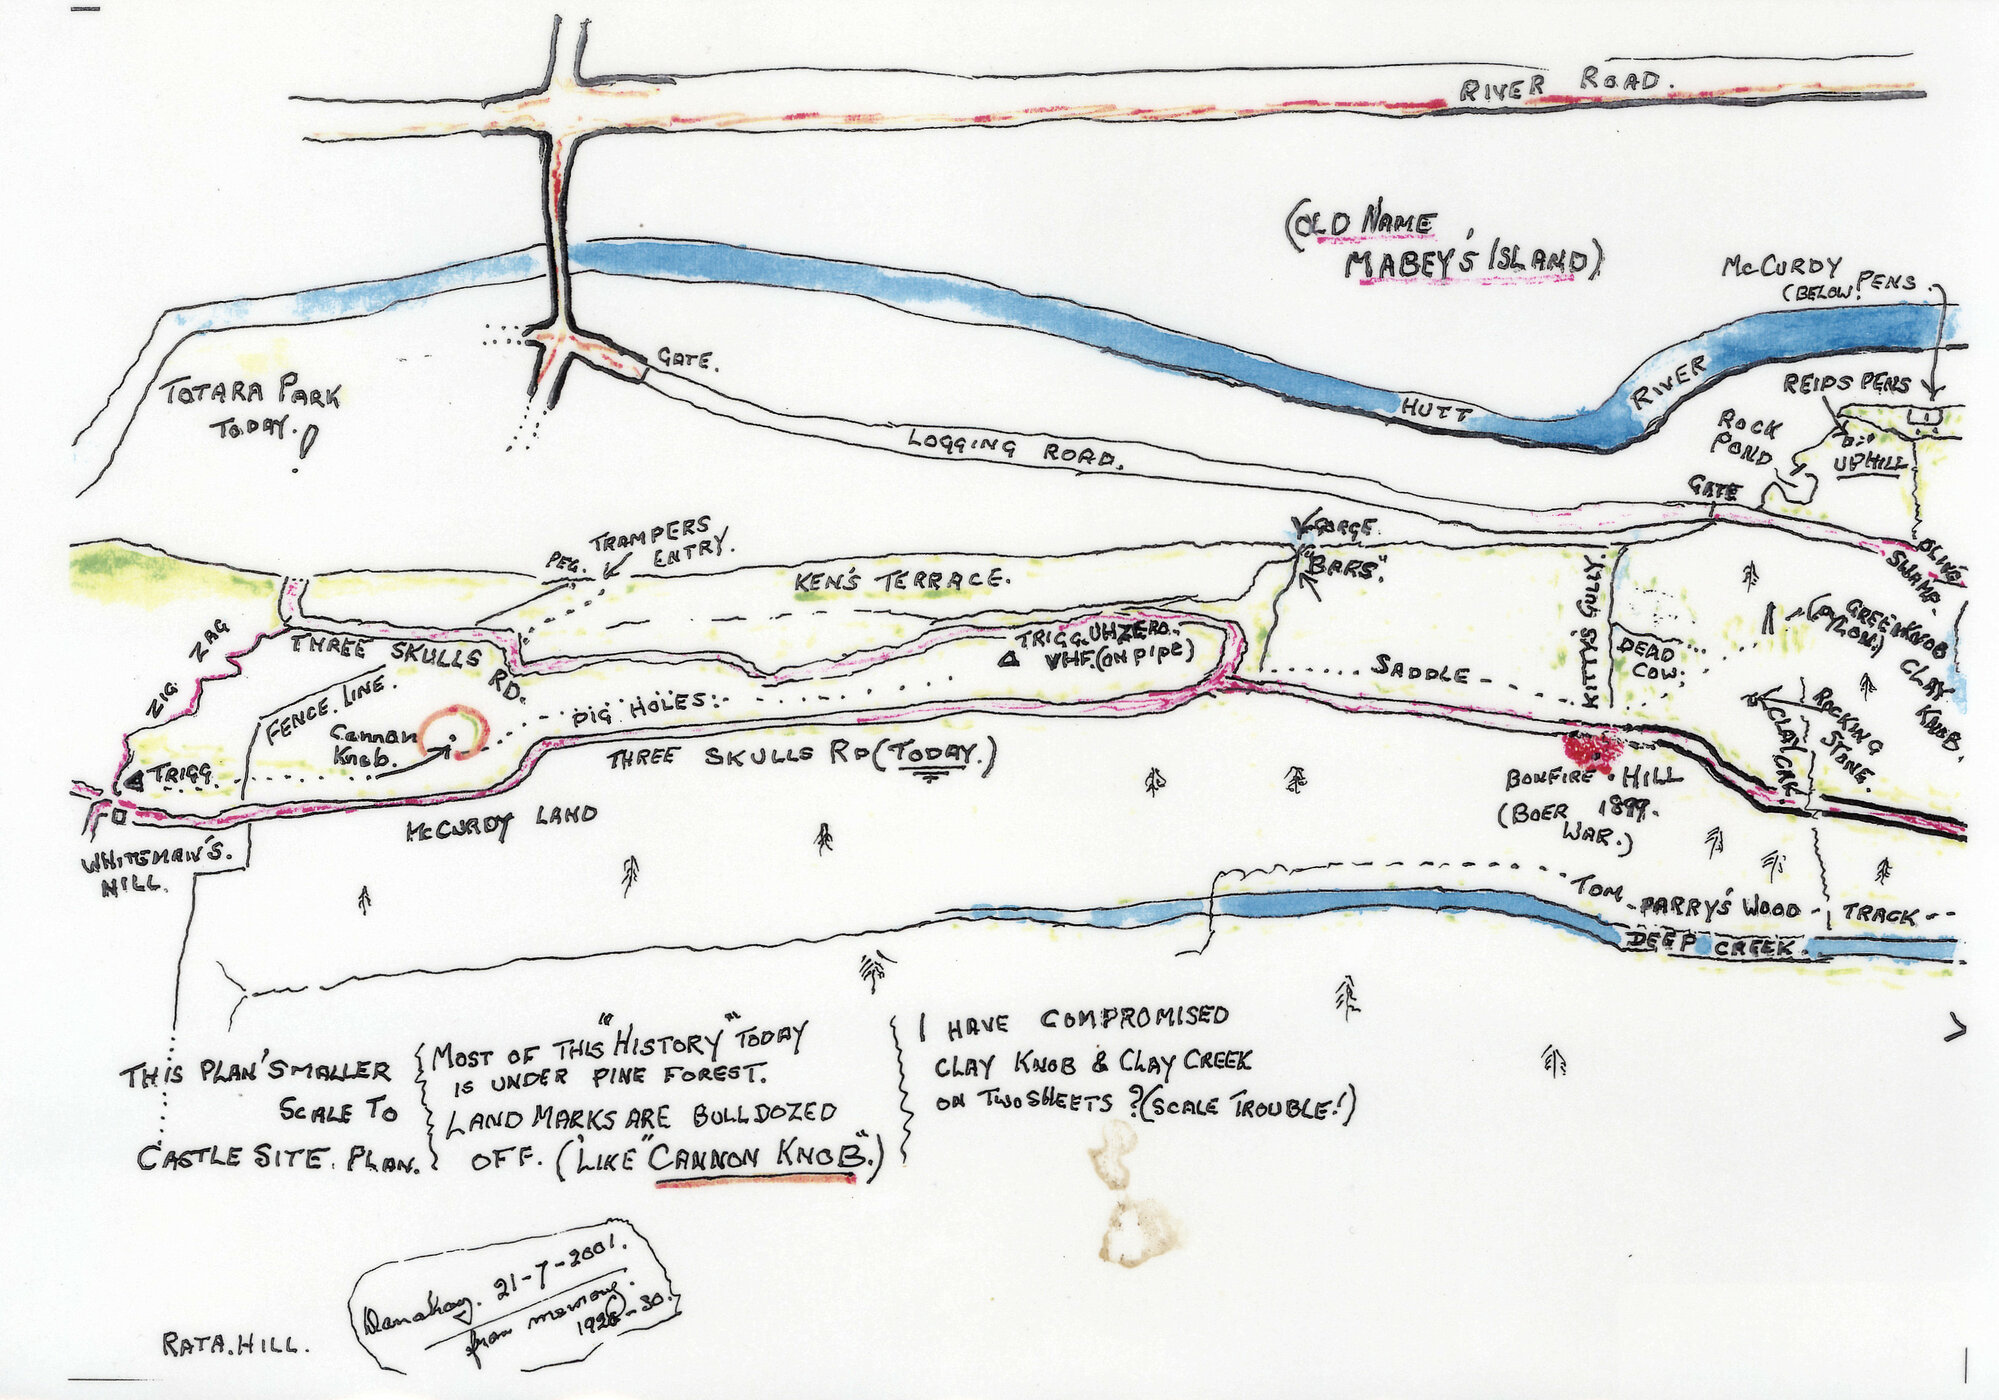 RIVER ROAD.
(OLD NAME
MABEY'S ISLAND)
McCURDY PENS
(BELOW!
REIDS PENS
UPHILL
ROCK
POND
GATE
RIVER
HUTT
GATE.
LOGGING ROAD.
TOTARA PARK
TODAY. !
TRAMPERS
ENTRY.
PEG.
KEN'S TERRACE.
GORGE
"BARS".
KITTY'S GULLY
DEAD
COW.
SWAMP.
GREEN KNOB
(PYLON.)
CLAY
KNOB.
ROCKING
STONE.
CLAY CRK
ZIG ZAG
THREE SKULLS
RD.
FENCE LINE.
Cannon
Knob.
PIG HOLES.
TRIGG. UHZERO.
VHF. (ON PIPE)
SADDLE
TRIGG
THREE SKULLS RD (TODAY.)
McCURDY LAND
WHITEMAN'S.
HILL.
BONFIRE HILL
(BOER 1899.
WAR.)
TOM PARRY'S WOOD TRACK
DEEP CREEK.
THIS PLAN SMALLER
SCALE TO
CASTLE SITE. PLAN.
MOST OF THIS "HISTORY" TODAY
IS UNDER PINE FOREST.
LAND MARKS ARE BULLDOZED
OFF. (LIKE "CANNON KNOB".)
I HAVE COMPROMISED
CLAY KNOB & CLAY CREEK
ON TWO SHEETS ? (SCALE TROUBLE!)
Danahay. 21-7-2001.
from memory.
RATA.HILL.